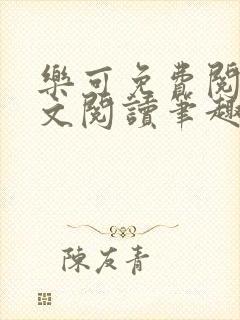 樂可免費閱
文閱讀筆趣
陳友青